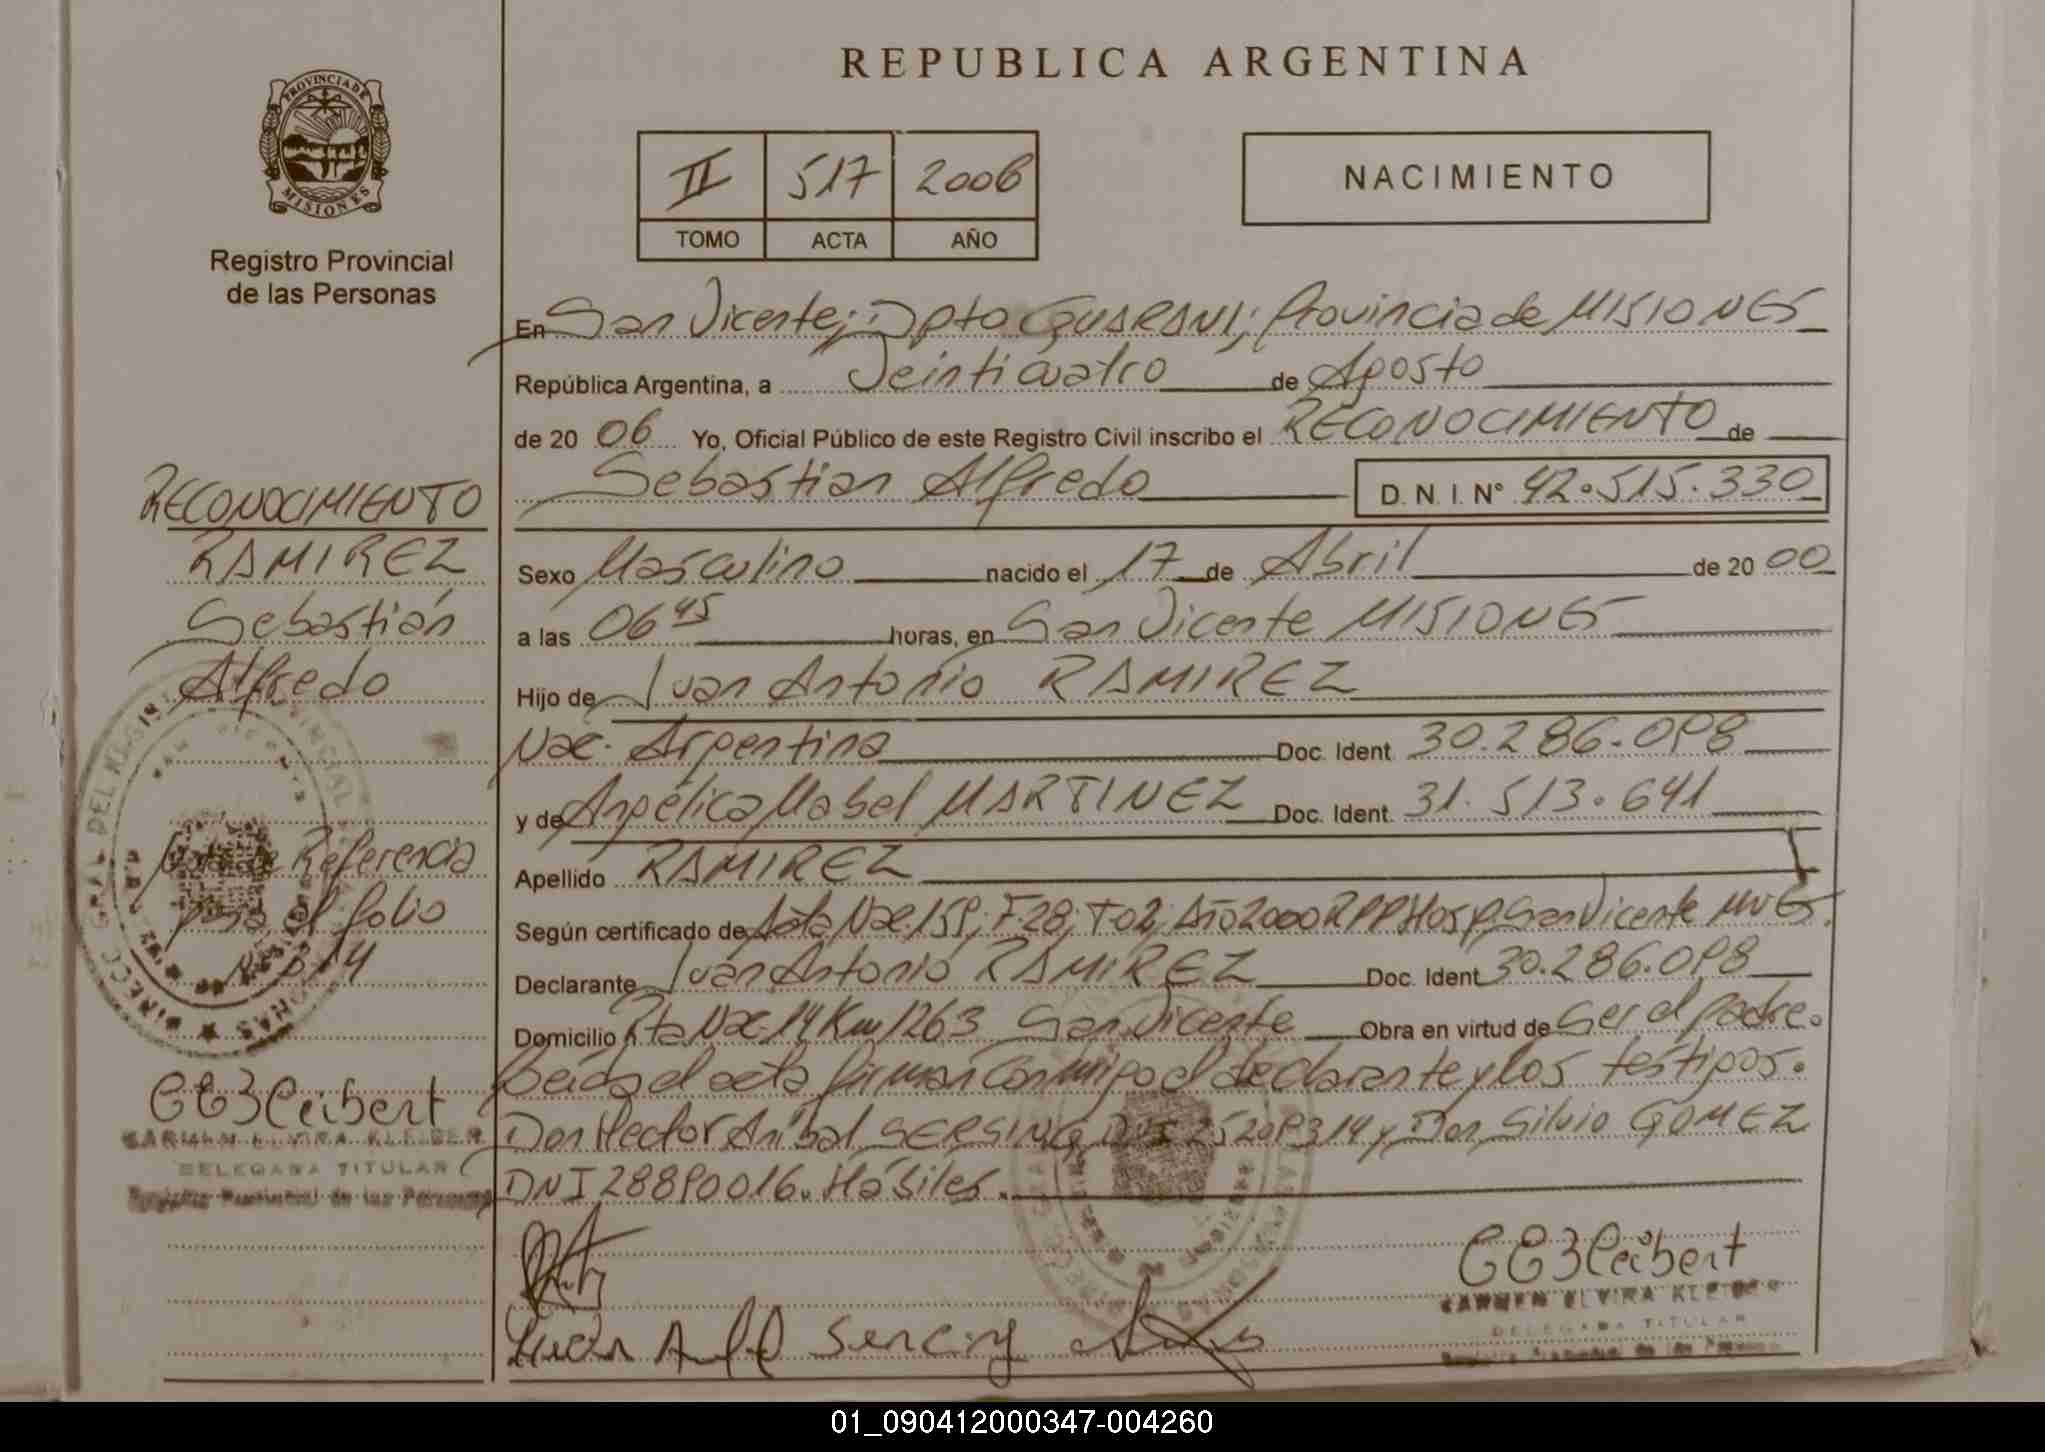 REPUBLICA ARGENTINA
PROVINCIA DE
MISIONES
Registro Provincial
de las Personas
II 517 2006
TOMO ACTA AÑO
NACIMIENTO
En San Vicente; Dpto GUARANI; Provincia de MISIONES
República Argentina, a Veinticuatro de Agosto
de 20 06 Yo, Oficial Público de este Registro Civil inscribo el RECONOCIMIENTO de
Sebastian Alfredo D. N. I. N° 42.515.330
Sexo Masculino nacido el 17 de Abril de 20 00
a las 06 45 horas, en San Vicente MISIONES
Hijo de Juan Antonio RAMIREZ
Nac. Argentina Doc. Ident. 30.286.098
y de Angélica Mabel MARTINEZ Doc. Ident. 31.513.641
Apellido RAMIREZ
Según certificado de Acta Nac. 159; F.28; T02; Año 2000 RPP Hosp. San Vicente
Declarante Juan Antonio RAMIREZ Doc. Ident 30.286.098
Domicilio Rta Nac. 14 Km 1263 San Vicente Obra en virtud de Ser el padre.
Leída el acta firman conmigo el declarante y los testigos.
Don Hector Aníbal DNI y Don Silvio GOMEZ
DNI 28890016. Hábiles.
RECONOCIMIENTO
RAMIREZ
Sebastián
Alfredo
Nota de Referencia
pasa al folio
CARMEN ELVIRA KLEIBER
DELEGADA TITULAR
Registro Provincial de las Personas
CARMEN ELVIRA KLEIBER
DELEGADA TITULAR
Registro Provincial de las Personas
01_090412000347-004260